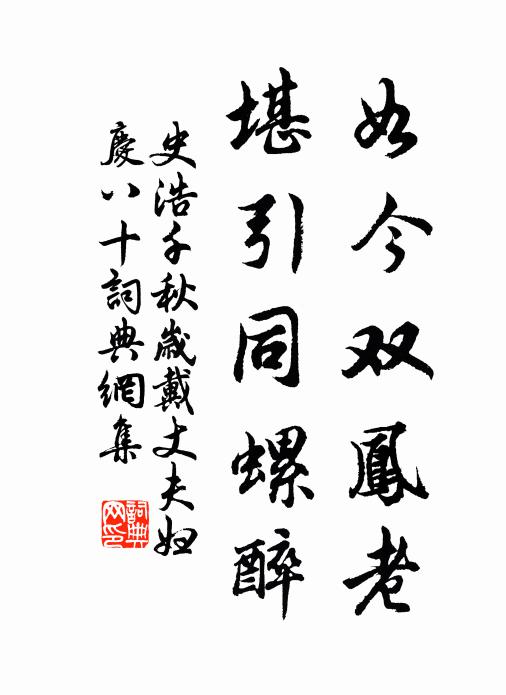 如今双鳳老
堪引同螺醉
史浩千秋歲戴丈夫妇
慶八十詞典網集
詞典
网印